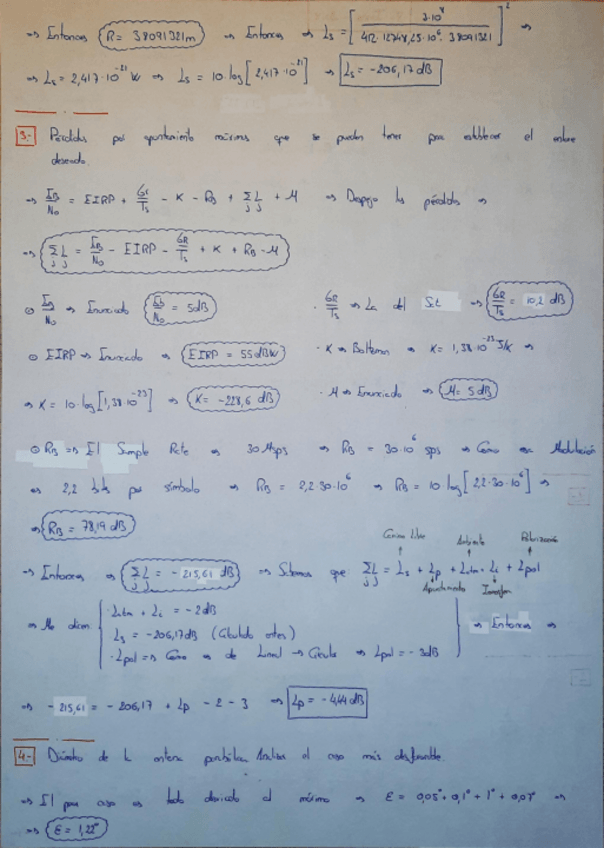 ⇒ Entonces R = 38091321m ⇒ Entonces ⇒ Ls = [ 3·10⁸ / 4π·12748,25·10⁶·38091321 ]² ⇒
⇒ Ls = 2,417·10⁻²¹ W ⇒ Ls = 10·log[2,417·10⁻²¹] ⇒ Ls = -206,17 dB
3.- Pérdidas por apuntamiento máximas que se pueden tener para establecer el enlace
deseado.
⇒ EB/N0 = EIRP + GR/Ts - K - RB + ΣL j j + M ⇒ Despejo las pérdidas ⇒
⇒ ΣL j j = EB/N0 - EIRP - GR/Ts + K + RB - M
⊙ EB/N0 ⇒ Enunciado EB/N0 = 5dB · GR/Ts ⇒ La del Sat ⇒ GR/Ts = 10,2 dB
⊙ EIRP ⇒ Enunciado ⇒ EIRP = 55 dBW · K ⇒ Boltzman ⇒ K = 1,38·10⁻²³ J/K ⇒
⇒ K = 10·log[1,38·10⁻²³] ⇒ K = -228,6 dB · M ⇒ Enunciado ⇒ M = 5 dB
⊙ RB ⇒ El Sample Rate ⇒ 30 Msps ⇒ RB = 30·10⁶ sps ⇒ Como esa Modulación
⇒ 2,2 bits por símbolo ⇒ RB = 2,2·30·10⁶ ⇒ RB = 10 log[2,2·30·10⁶] ⇒
⇒ RB = 78,19 dB
Camino Libre Ambiente Polarización
⇒ Entonces ⇒ ΣL j j = -215,61 dB ⇒ Sabemos que ΣL j j = Ls + Lp + Latm + Li + Lpol
Apuntamiento
⇒ Me dicen · Latm + Li = -2dB
Ls = -206,17dB (Calculado antes) ⇒ Entonces ⇒
· Lpol ⇒ Como es de Lineal → Circula ⇒ Lpol = -3dB
⇒ -215,61 = -206,17 + Lp - 2 - 3 ⇒ Lp = -4,44 dB
4.- Diámetro de la antena parabólica. Analiza el caso más desfavorable.
⇒ El peor caso es todo desviado el máximo ⇒ E = 0,05° + 0,1° + 1° + 0,07° ⇒
⇒ E = 1,22°